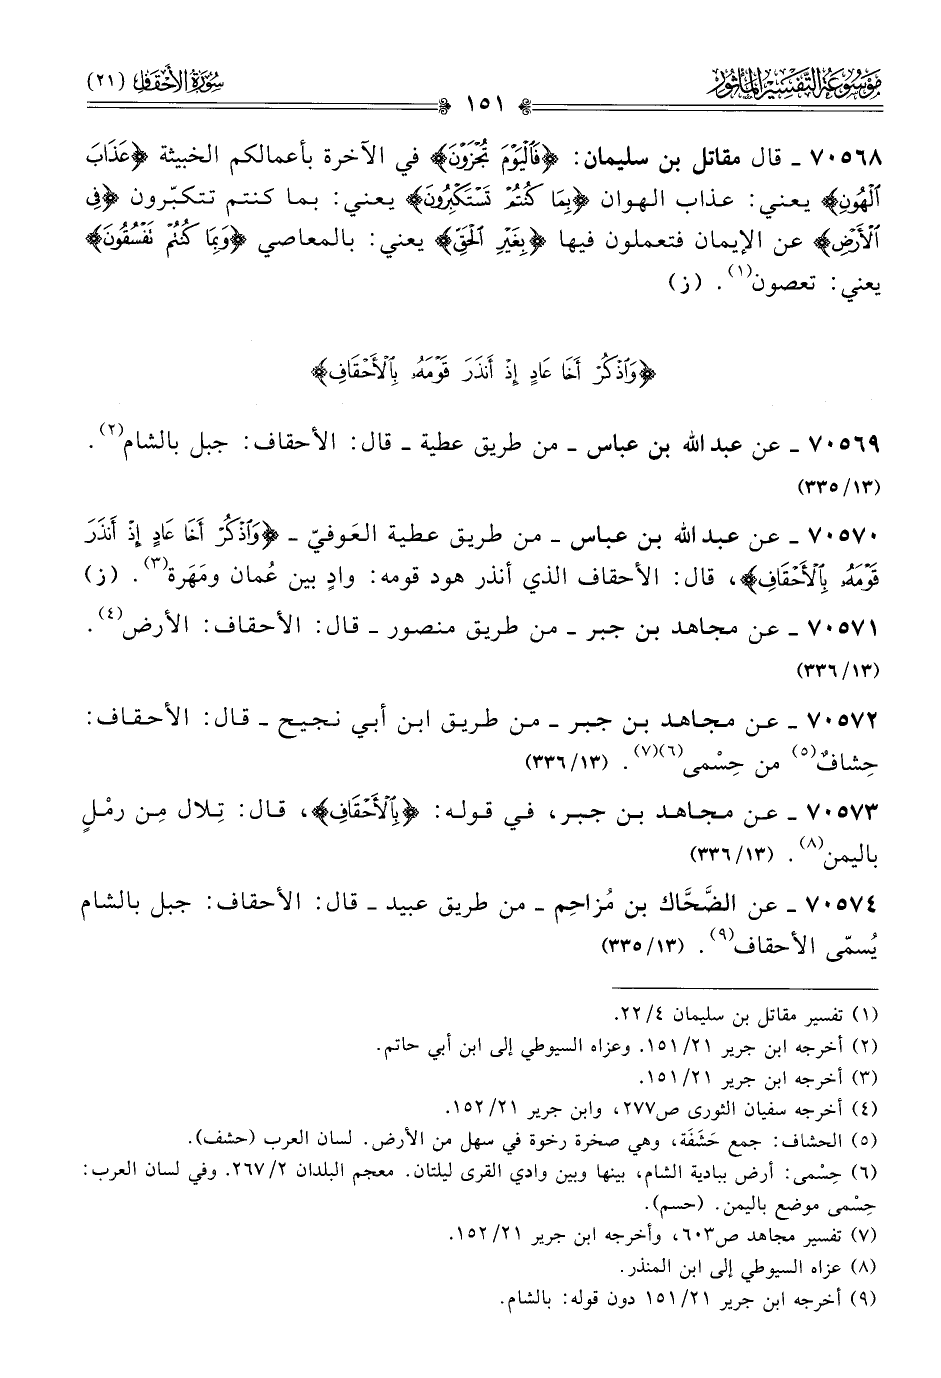 مَوْسُوعَةُ التَّفْسِيرِ المَأْثُورِ
١٥١
سُورَةُ الأَحْقَافِ (٢١)
٧٠٥٦٨ ـ قال مقاتل بن سليمان: ﴿فَٱلْيَوْمَ تُجْزَوْنَ﴾ في الآخرة بأعمالكم الخبيثة ﴿عَذَابَ
ٱلْهُونِ﴾ يعني: عذاب الهوان ﴿بِمَا كُنتُمْ تَسْتَكْبِرُونَ﴾ يعني: بما كنتم تتكبّرون ﴿فِى
ٱلْأَرْضِ﴾ عن الإيمان فتعملون فيها ﴿بِغَيْرِ ٱلْحَقِّ﴾ يعني: بالمعاصي ﴿وَبِمَا كُنتُمْ تَفْسُقُونَ﴾
يعني: تعصون(١). (ز)
﴿وَٱذْكُرْ أَخَا عَادٍ إِذْ أَنذَرَ قَوْمَهُۥ بِٱلْأَحْقَافِ﴾
٧٠٥٦٩ ـ عن عبد الله بن عباس ـ من طريق عطية ـ قال: الأحقاف: جبل بالشام(٢).
(١٣/٣٣٥)
٧٠٥٧٠ ـ عن عبد الله بن عباس ـ من طريق عطية العَوفيّ ـ ﴿وَٱذْكُرْ أَخَا عَادٍ إِذْ أَنذَرَ
قَوْمَهُۥ بِٱلْأَحْقَافِ﴾، قال: الأحقاف الذي أنذر هود قومه: وادٍ بين عُمان ومَهَرة(٣). (ز)
٧٠٥٧١ ـ عن مجاهد بن جبر ـ من طريق منصور ـ قال: الأحقاف: الأرض(٤).
(١٣/٣٣٦)
٧٠٥٧٢ ـ عن مجاهد بن جبر ـ من طريق ابن أبي نجيح ـ قال: الأحقاف:
حِشافٌ(٥) من حِسْمى(٦)(٧). (١٣/٣٣٦)
٧٠٥٧٣ ـ عن مجاهد بن جبر، في قوله: ﴿بِٱلْأَحْقَافِ﴾، قال: تِلال مِن رمْلٍ
باليمن(٨). (١٣/٣٣٦)
٧٠٥٧٤ ـ عن الضَّحَّاك بن مُزاحِم ـ من طريق عبيد ـ قال: الأحقاف: جبل بالشام
يُسمّى الأحقاف(٩). (١٣/٣٣٥)
(١) تفسير مقاتل بن سليمان ٤/٢٢.
(٢) أخرجه ابن جرير ٢١/١٥١. وعزاه السيوطي إلى ابن أبي حاتم.
(٣) أخرجه ابن جرير ٢١/١٥١.
(٤) أخرجه سفيان الثورى ص٢٧٧، وابن جرير ٢١/١٥٢.
(٥) الحشاف: جمع حَشَفَة، وهي صخرة رخوة في سهل من الأرض. لسان العرب (حشف).
(٦) حِسْمى: أرض ببادية الشام، بينها وبين وادي القرى ليلتان. معجم البلدان ٢/٢٦٧. وفي لسان العرب:
حِسْمى موضع باليمن. (حسم).
(٧) تفسير مجاهد ص٦٠٣، وأخرجه ابن جرير ٢١/١٥٢.
(٨) عزاه السيوطي إلى ابن المنذر.
(٩) أخرجه ابن جرير ٢١/١٥١ دون قوله: بالشام.